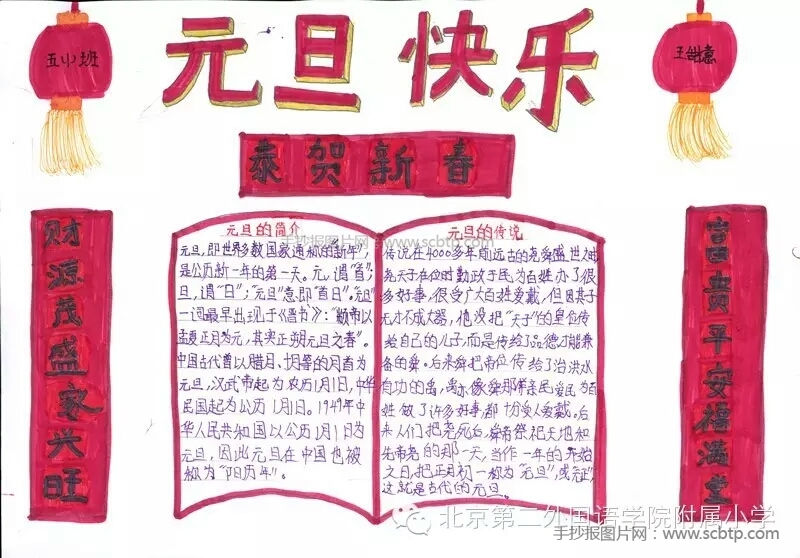 五(1)班
王甜意
元旦快乐
恭贺新春
财源茂盛家兴旺
富贵平安福满堂
元旦的简介
元旦,即世界多数国家通称的“新年”,
是公历新一年的第一天。元,谓“首”;
旦,谓“日”;“元旦”意即“首日”。“元旦”
一词最早出现于《晋书》:“颛帝以
孟夏正月为元,其实正朔元旦之春”。
中国古代曾以腊月、十月等的月首为
元旦,汉武帝起为农历1月1日,中华
民国起为公历1月1日。1949年中
华人民共和国以公历1月1日为
元旦,因此元旦在中国也被
称为“阳历年”。
元旦的传说
传说在4000多年前远古的尧舜盛世之时
尧天子在位时勤政于民为百姓办了很
多好事,很受广大百姓爱戴,但因其子
无才不成大器,他没把“天子”的皇位传
给自己的儿子,而是传给了品德才能兼
备的舜。后来舜把帝位传给了治洪水
有功的禹,禹亦像舜那样亲民爱民为百
姓做了许多好事都十分受人爱戴。后
来人们把尧死后,舜帝祭祀天地和
先帝尧的那一天,当作一年的开始
之日,把正月初一称为“元旦”,或“元正”,
这就是古代的元旦。
手抄报图片网:www.scbtp.com
北京第二外国语学院附属小学
手抄报图片网:www.scbtp.com